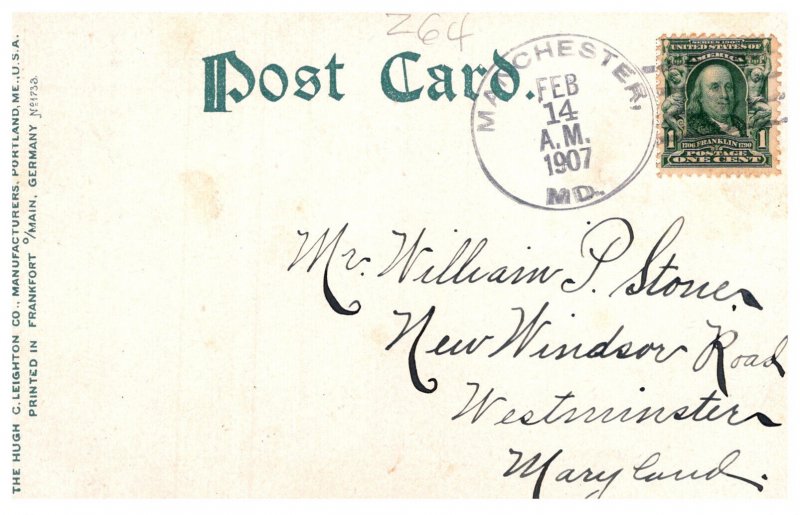 264
Post Card.
MANCHESTER,
FEB
14
A.M.
1907
MD.
SERIES 1902
UNITED STATES OF
AMERICA
1 1706 FRANKLIN 1790 1
POSTAGE
ONE CENT
Mr. William P. Stone,
New Windsor Road
Westminster
Maryland.
THE HUGH C. LEIGHTON CO., MANUFACTURERS, PORTLAND, ME., U.S.A.
PRINTED IN FRANKFORT O/MAIN, GERMANY No 1733.